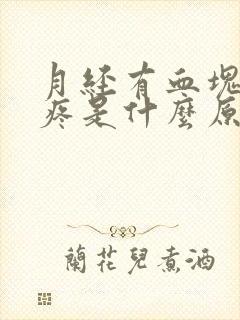 月经有血塊
疼是什麼原
蘭花兒煮酒